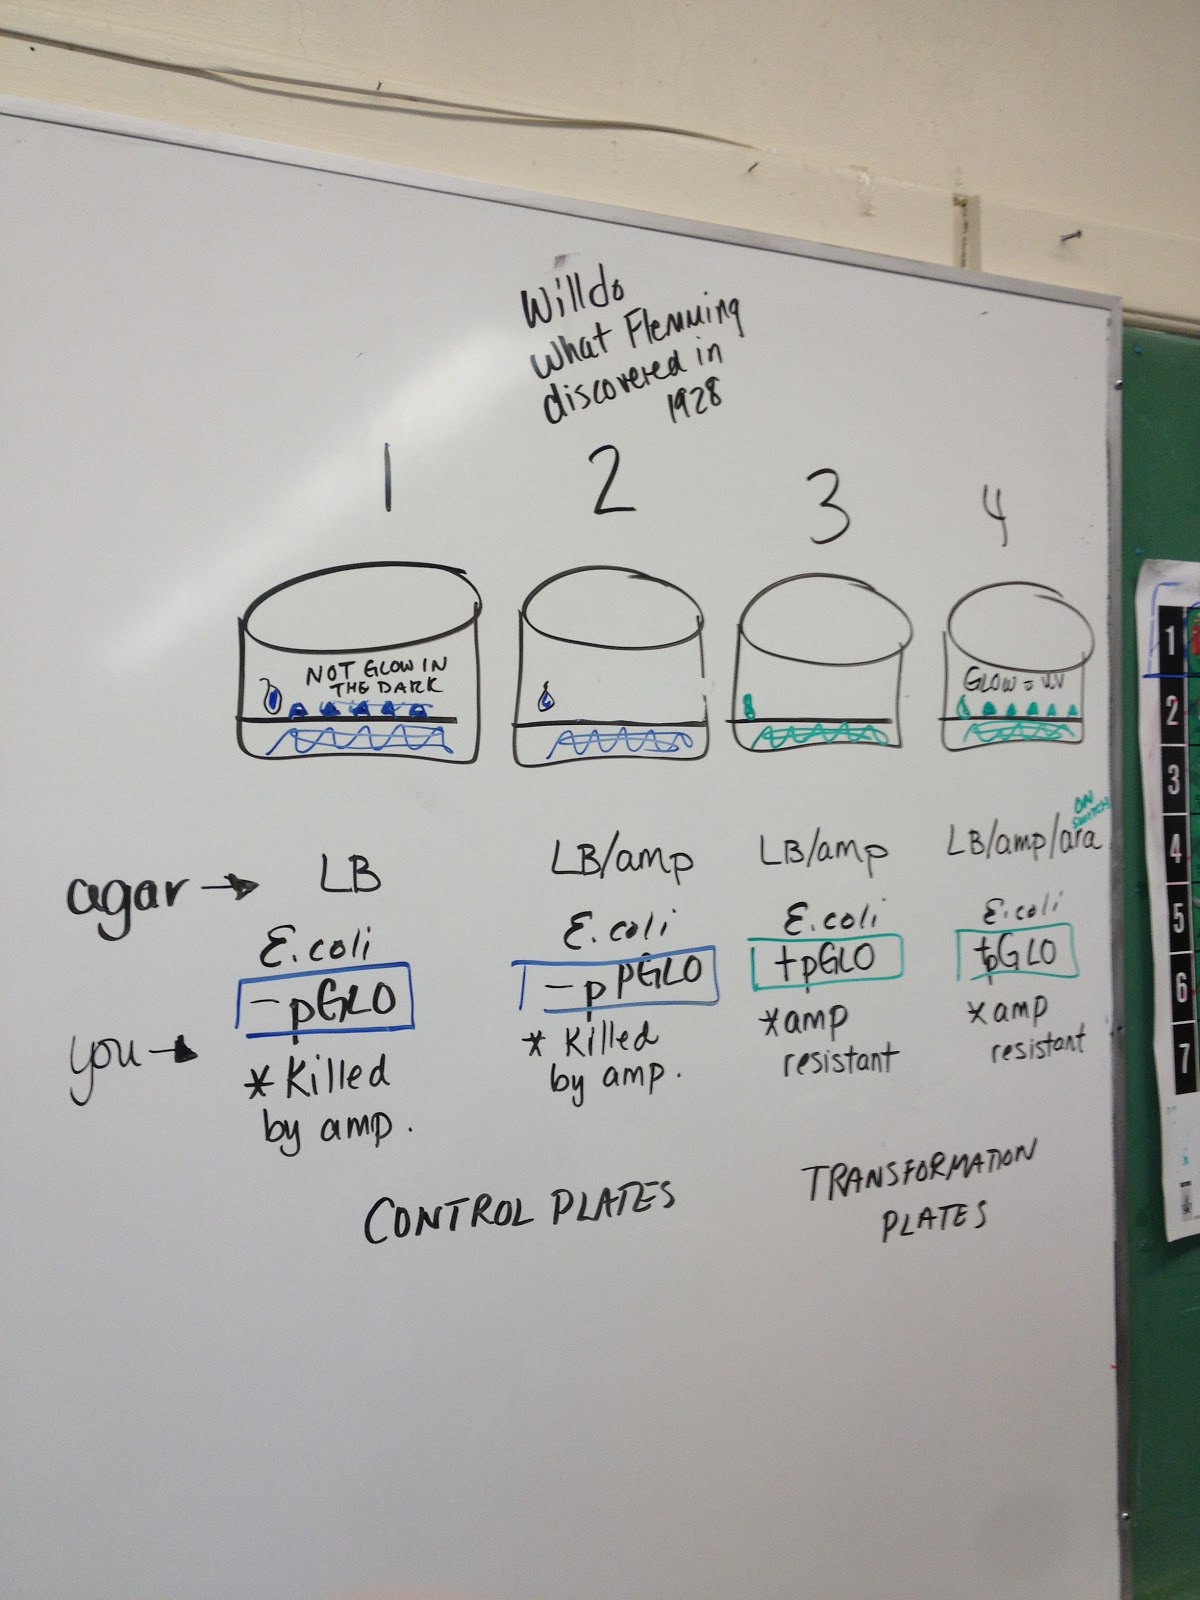 Will do
What Flemming
discovered in
1928
1
2
3
4
NOT GLOW IN
THE DARK
GLOW = UV
ON
SWITCH
agar →
LB
LB/amp
LB/amp
LB/amp/ara
you →
E.coli
-pGLO
* Killed
by amp.
E.coli
-p pGLO
* Killed
by amp.
E.coli
+pGLO
* amp
resistant
E.coli
+pGLO
* amp
resistant
CONTROL PLATES
TRANSFORMATION
PLATES
1
2
3
4
5
6
7